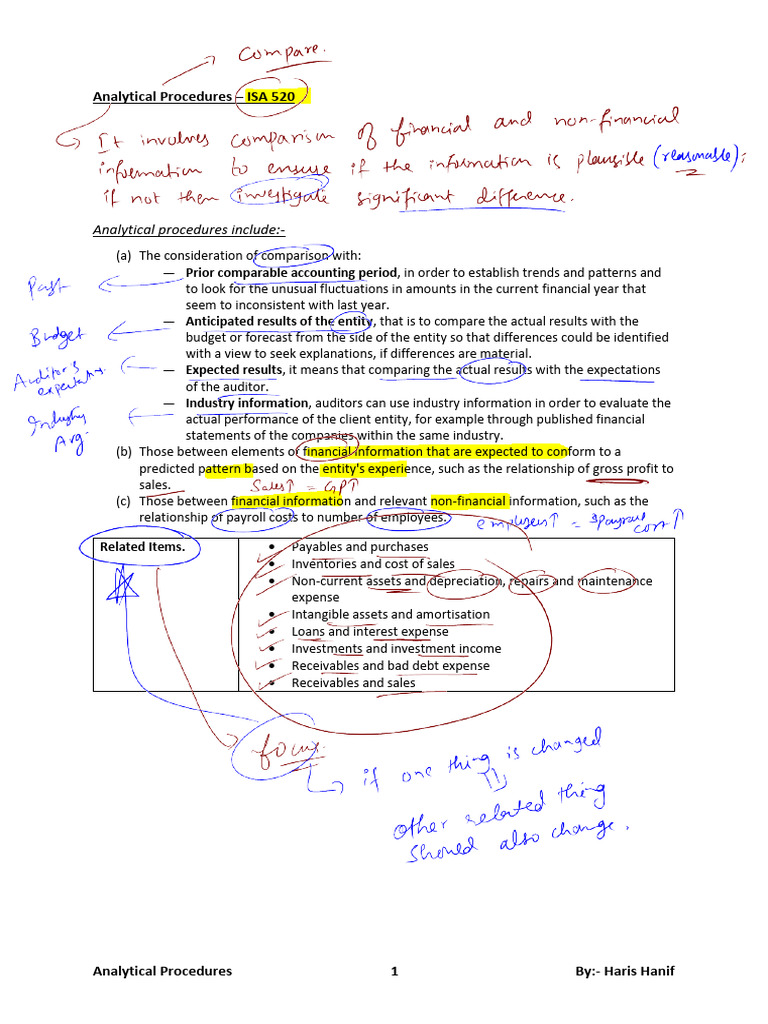 Compare.
Analytical Procedures – ISA 520
It involves comparison of financial and non-financial
information to ensure if the information is plausible (reasonable);
if not then investigate significant difference.
Analytical procedures include:-
(a) The consideration of comparison with:
— Prior comparable accounting period, in order to establish trends and patterns and
to look for the unusual fluctuations in amounts in the current financial year that
seem to inconsistent with last year.
Past
— Anticipated results of the entity, that is to compare the actual results with the
budget or forecast from the side of the entity so that differences could be identified
with a view to seek explanations, if differences are material.
Budget
— Expected results, it means that comparing the actual results with the expectations
of the auditor.
Auditor's
— Industry information, auditors can use industry information in order to evaluate the
actual performance of the client entity, for example through published financial
statements of the companies within the same industry.
Industry
Avg.
(b) Those between elements of financial information that are expected to conform to a
predicted pattern based on the entity's experience, such as the relationship of gross profit to
sales.
Sales↑ = GP↑
(c) Those between financial information and relevant non-financial information, such as the
relationship of payroll costs to number of employees.
employees↑ = payroll
cost↑
Related Items.
• Payables and purchases
• Inventories and cost of sales
• Non-current assets and depreciation, repairs and maintenance
expense
• Intangible assets and amortisation
• Loans and interest expense
• Investments and investment income
• Receivables and bad debt expense
• Receivables and sales
focus
if one thing is changed
other related thing
should also change.
Analytical Procedures 1 By:- Haris Hanif